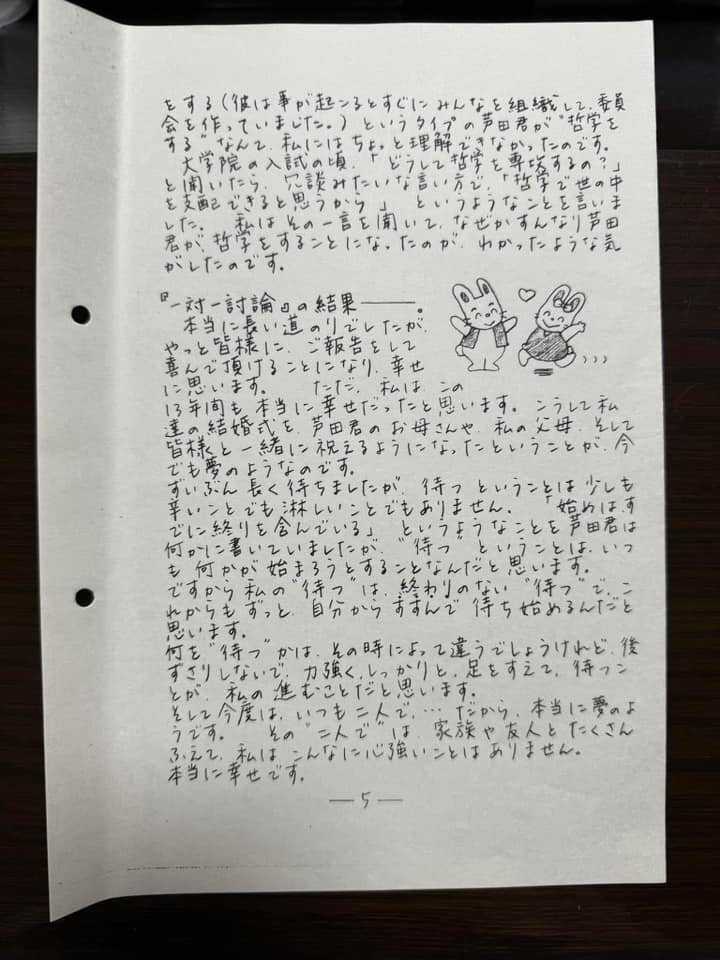 をする(彼は事が起こるとすぐにみんなを組織して、委員
会を作っていました。)というタイプの芦田君が“哲学を
する”なんて、私にはちょっと理解できなかったのです。
大学院の入試の頃、「どうして哲学を専攻するの?」
と聞いたら、冗談みたいな言い方で、「哲学で世の中
を支配できると思うから」というようなことを言いま
した。私はその一言を聞いて、なぜかすんなり芦田
君が、哲学をすることになったのが、わかったような気
がしたのです。
『一対一討論』の結果———。
本当に長い道のりでしたが、
やっと皆様に、ご報告をして
喜んで頂けることになり、幸せ
に思います。ただ、私は、この
13年間も、本当に幸せだったと思います。こうして私
達の結婚式を、芦田君のお母さんや、私の父母、そして
皆様と一緒に祝えるようになったということが、今
でも夢のようなのです。
ずいぶん長く待ちましたが、待つということは少しも
辛いことでも淋しいことでもありません。「始めはす
でに終りを含んでいる」というようなことを芦田君は
何かに書いていましたが、“待つ”ということは、いつ
も何かが始まろうとすることなんだと思います。
ですから私の“待つ”は、終わりのない“待つ”で、こ
れからもずっと、自分からすすんで待ち始めるんだと
思います。
何を“待つ”かは、その時によって違うでしょうけれど、後
ずさりしないで、力強く、しっかりと、足をすえて、待つこ
とが、私の進むことだと思います。
そして今度は、いつも二人で、… だから、本当に夢のよ
うです。その“二人で”は、家族や友人とたくさん
ふえて、私はこんなに心強いことはありません。
本当に幸せです。
—5—